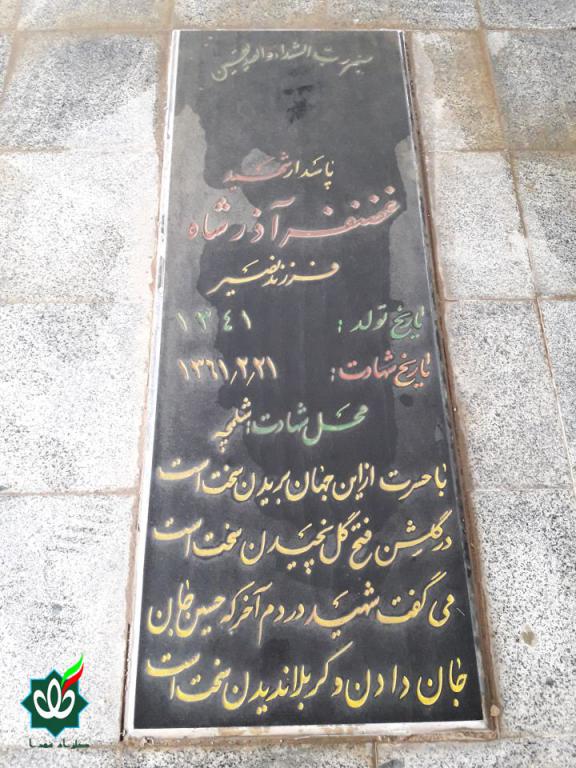 پاسدار شهید
غضنفر آذرشاه
فرزند نصیر
تاریخ تولد : ۱۳۴۱
تاریخ شهادت : ۱۳۶۱/۲/۲۱
محل شهادت : شلمچه
با حسرت از این جهان بریدن سخت است
در گلشن فتح گل نچیدن سخت است
می گفت شهید در دم آخر که حسین جان
جان دادن و کربلا ندیدن سخت است